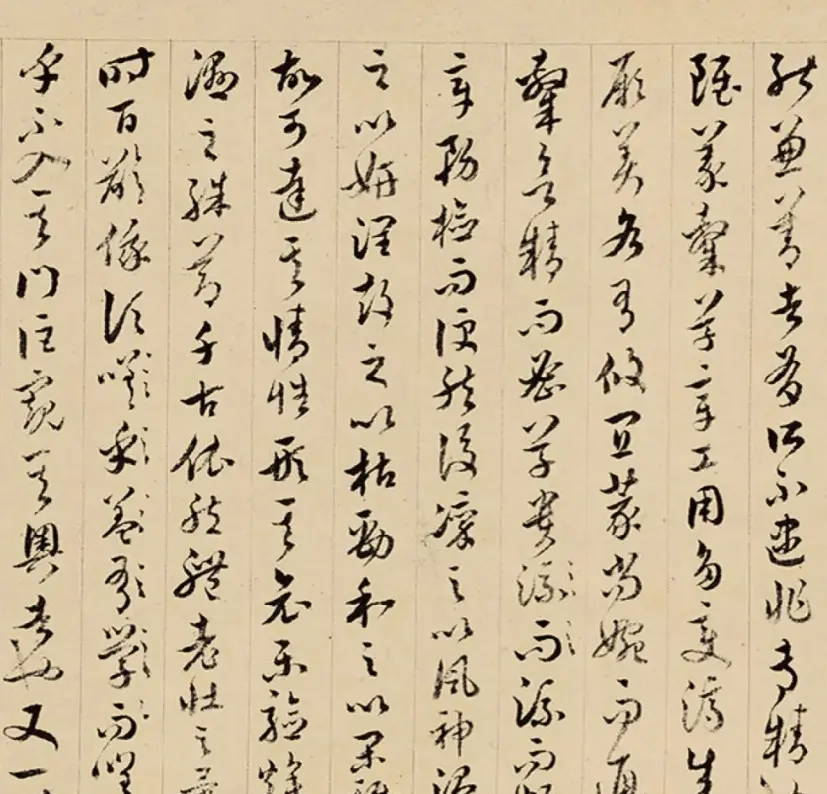 能兼善者有所不逮非專精
雖篆隸草章工用多變濟成
厥美各有攸宜篆尚婉而通
隸欲精而密草貴流而流而暢
章務檢而便然後凜之以風神溫
之以妍潤鼓之以枯勁和之以閑雅
故可達其情性形其哀樂驗燥
濕之殊節千古依然體老壯之異
時百齡俄頃嗟學而
乎不入其門詎窺其奧者也又一